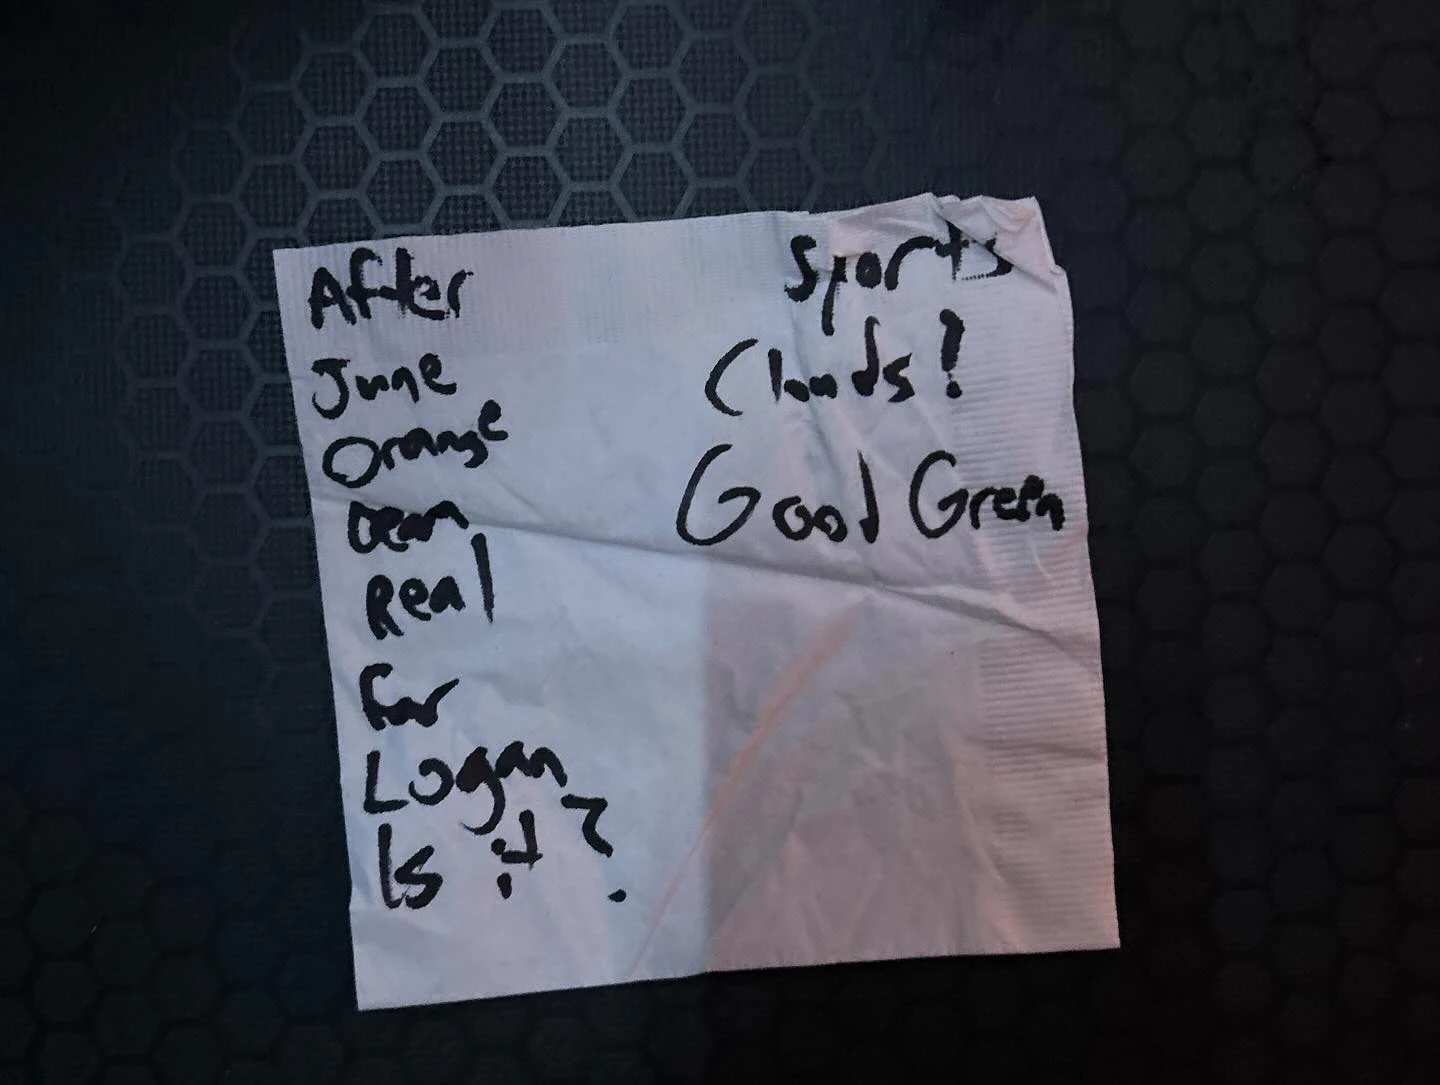 After
June
Orange
Dean
Real
For
Logan
Is it?
Sports
Clouds?
Good Green